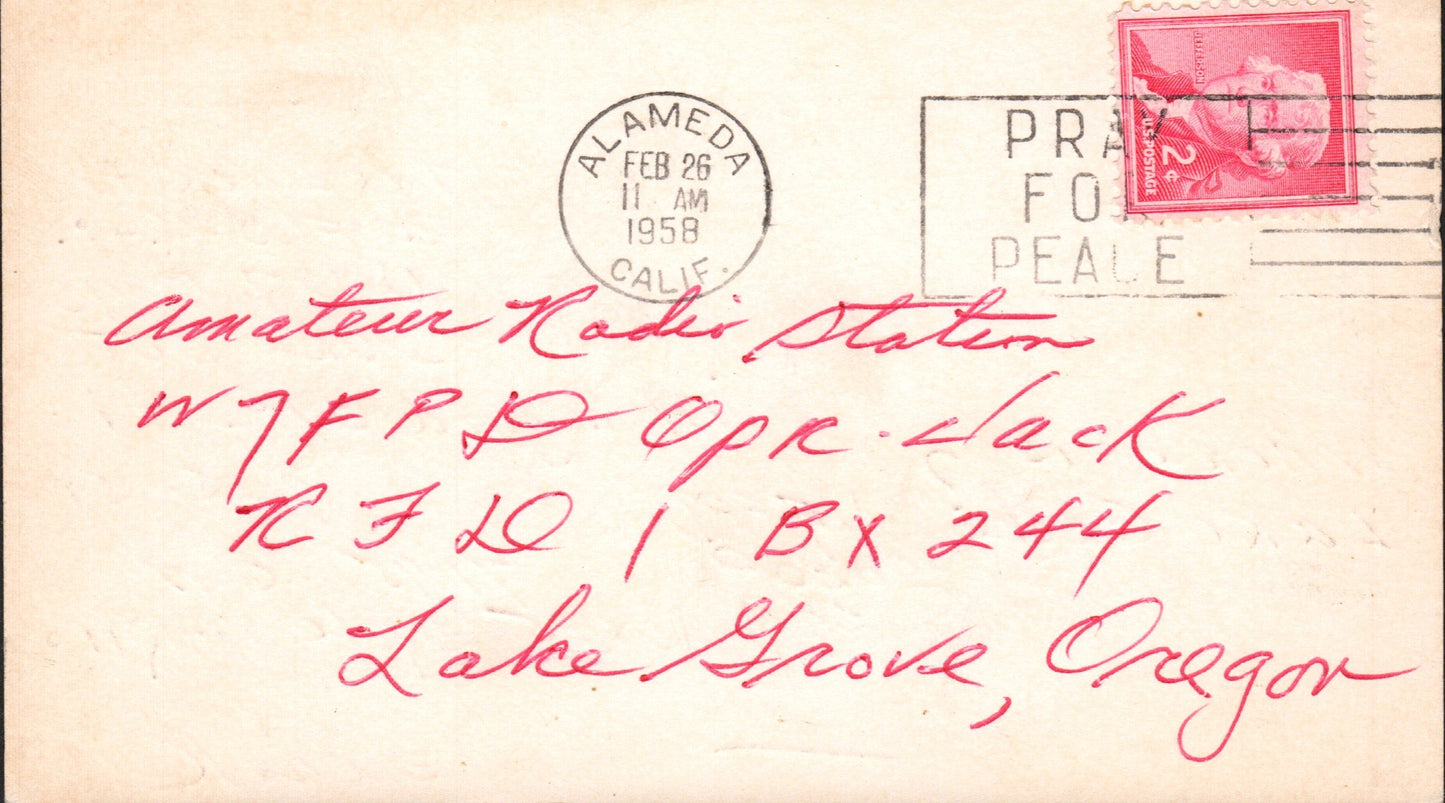 ALAMEDA
FEB 26
11 AM
1958
CALIF.
PRAY
FOR
PEACE
JEFFERSON
2¢
U.S. POSTAGE
Amateur Radio Station
W7FPD Opr. Jack
RFD 1 BX 244
Lake Grove, Oregon